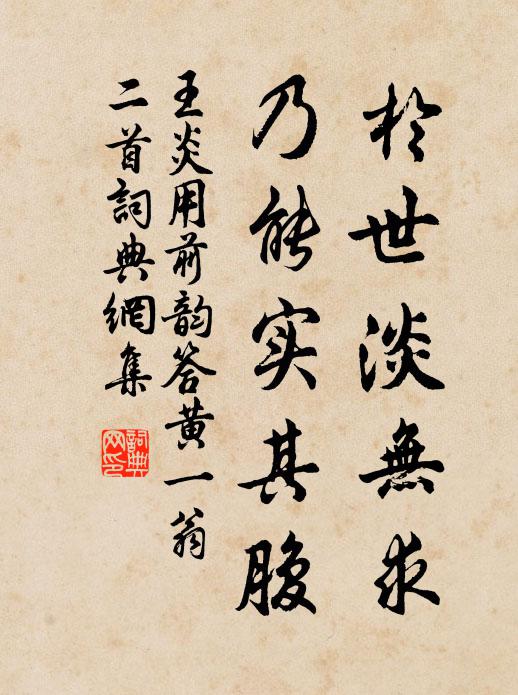 於世淡無求
乃能实其腹
王炎用前韵答黄一翁
二首詞典網集
詞典
网印